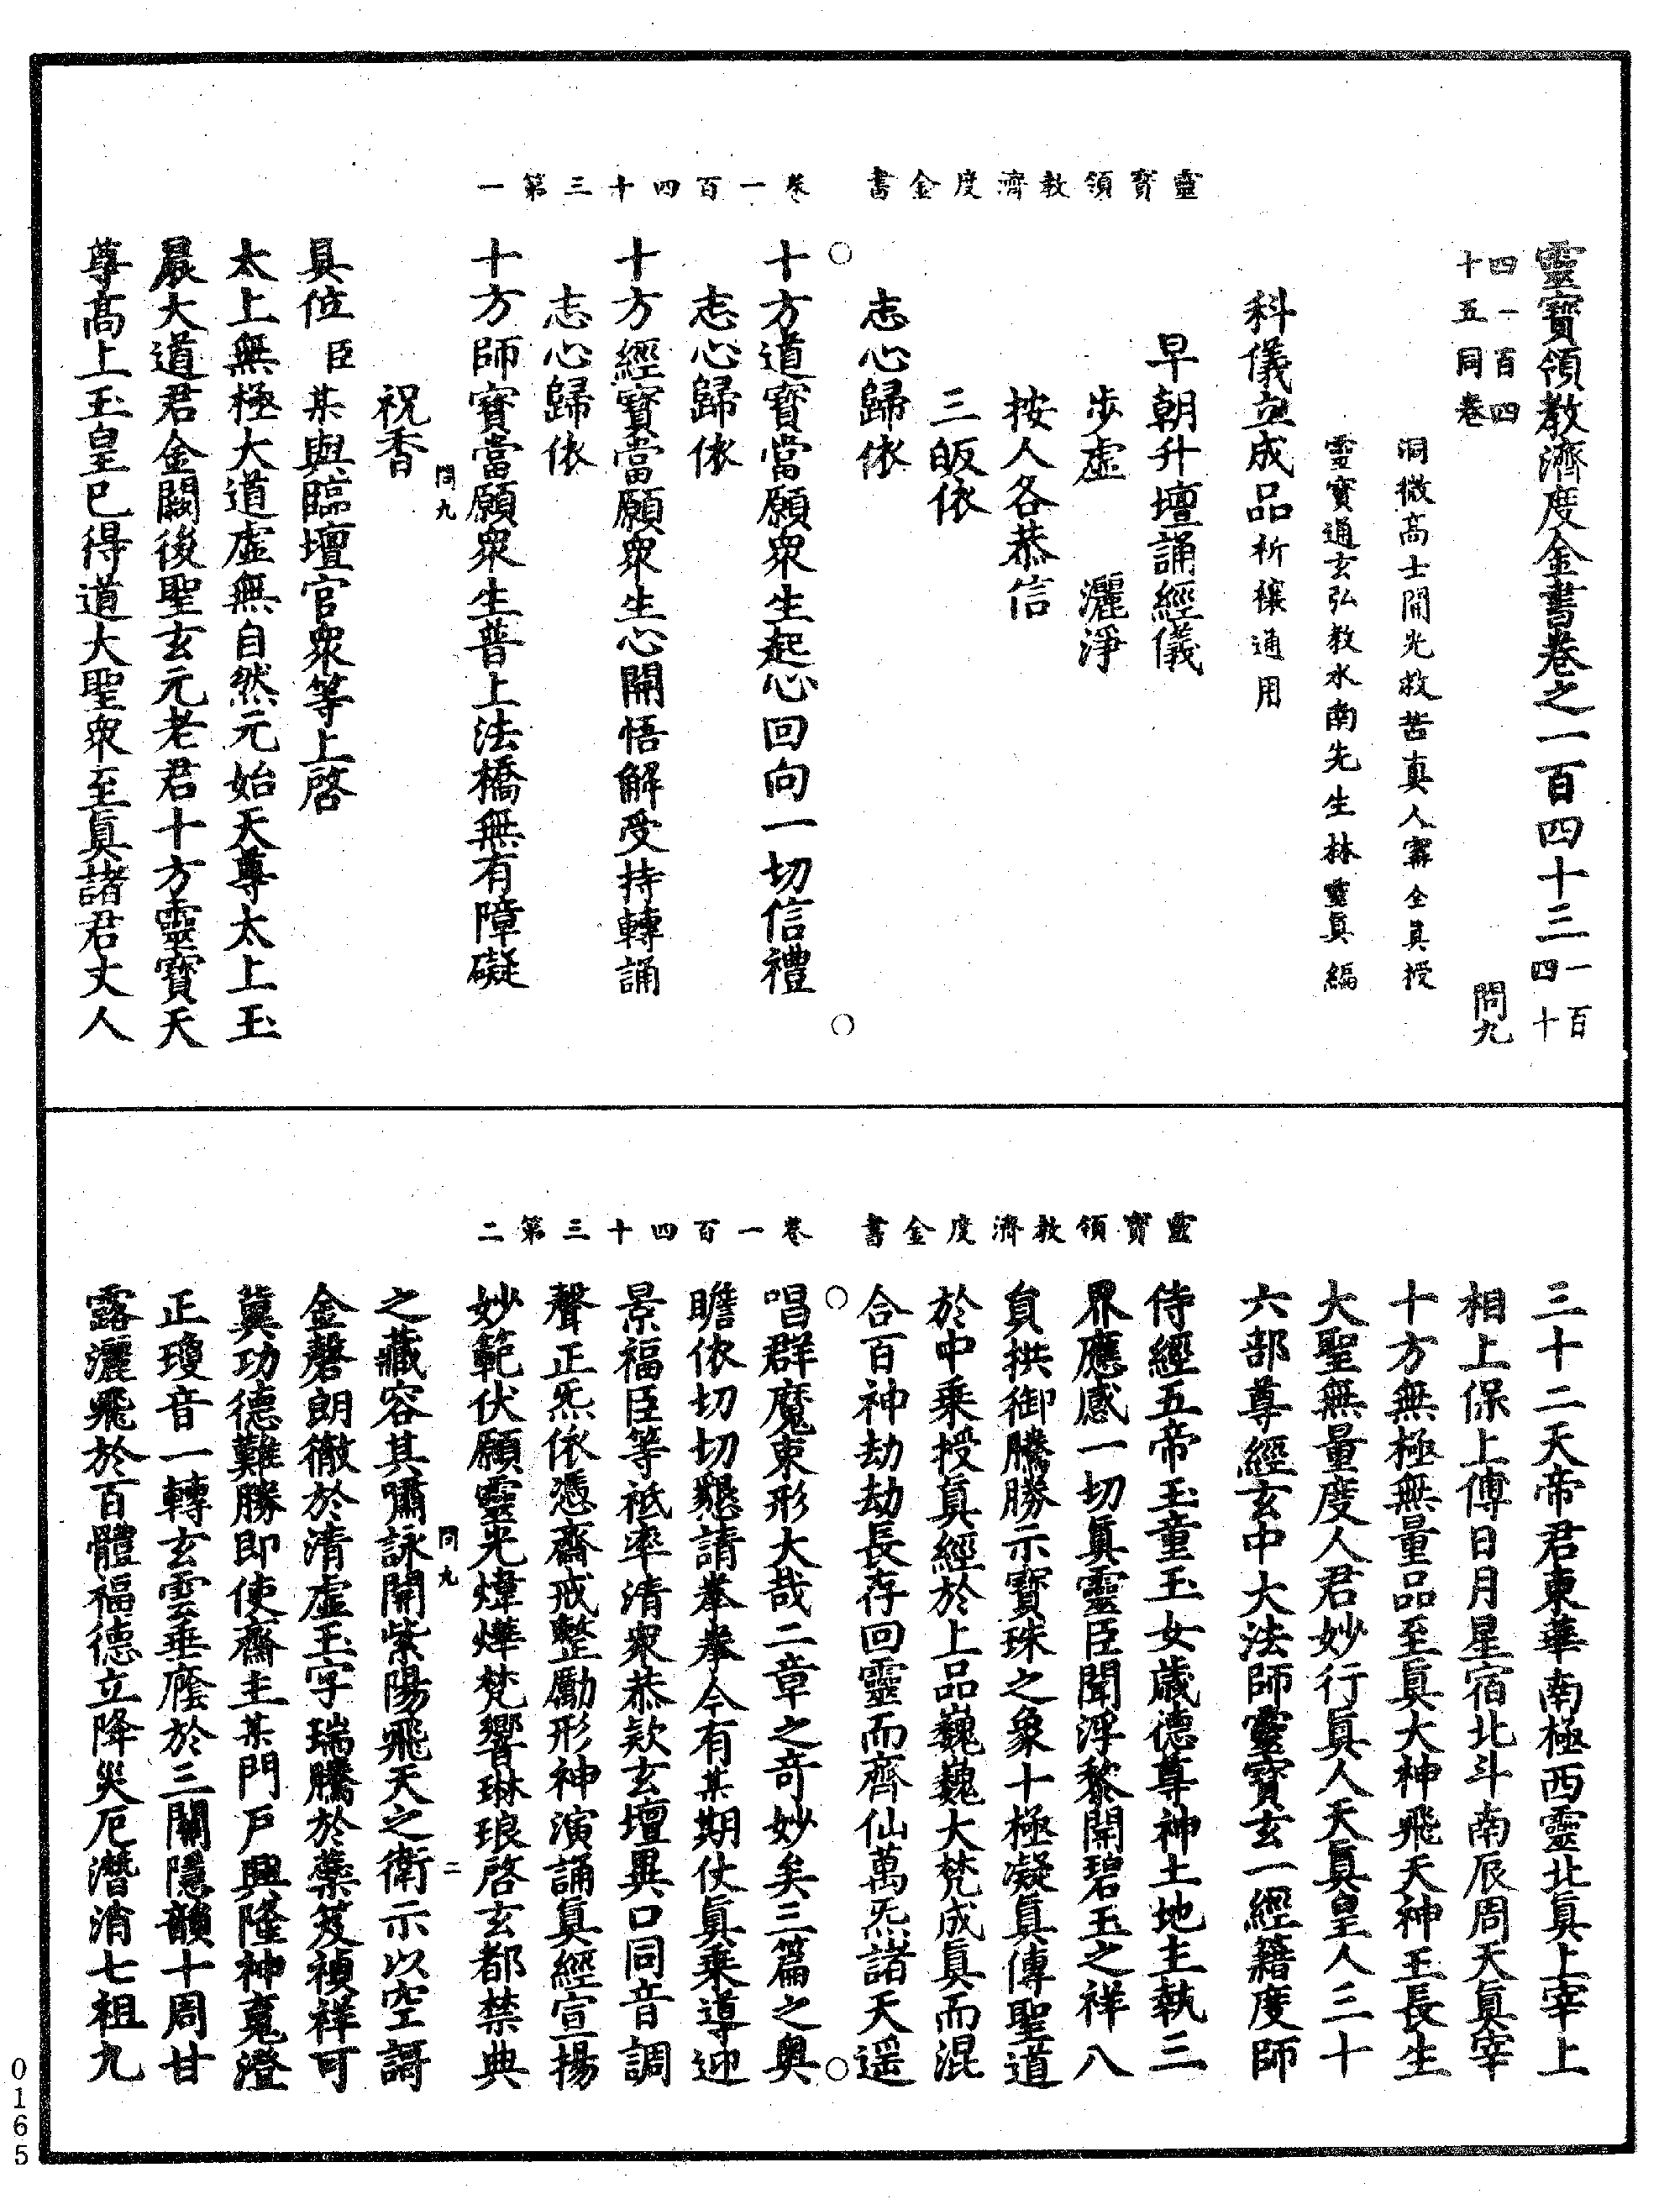 靈寶領教濟度金書　卷一百四十三第一
靈寶領教濟度金書卷之一百四十三一百四十
四一百四十五同卷　問九
洞微高士開光救苦真人甯全真授
靈寶通玄弘教水南先生林靈眞編
科儀立成品祈禳通用
早朝升壇誦經儀
步虛　灑淨
按人各恭信
三皈依
志心歸依
十方道寶當願衆生起心回向一切信禮
志心歸依
十方經寶當願衆生心開悟解受持轉誦
志心歸依
十方師寶當願衆生普上法橋無有障礙
問九
祝香
具位臣某與臨壇官衆等上啓
太上無極大道虛無自然元始天尊太上玉
晨大道君金闕後聖玄元老君十方靈寶天
尊高上玉皇已得道大聖衆至眞諸君丈人
靈寶領教濟度金書　卷一百四十三第二
三十二天帝君東華南極西靈北眞上宰上
相上保上傅日月星宿北斗南辰周天眞宰
十方無極無量品至眞大神飛天神王長生
大聖無量度人君妙行眞人天眞皇人三十
六部尊經玄中大法師靈寶玄一經籍度師
侍經五帝玉童玉女歲德尊神土地主執三
界應感一切眞靈臣聞浮黎開碧玉之祥八
負拱御騰勝示寶珠之象十極凝眞傳聖道
於中乘授眞經於上品巍巍大梵成眞而混
合百神劫劫長存回靈而齊仙萬炁諸天遥
唱群魔束形大哉二章之奇妙矣三篇之奥
瞻依切切懇請拳拳今有某期仗眞乘導迎
景福臣等祗率清衆恭欵玄壇異口同音調
聲正炁依憑齋戒整勵形神演誦眞經宣揚
妙範伏願靈光煒燁梵響琳琅啓玄都禁典
問九　二
之藏容其嘯詠開紫陽飛天之衛示以空謌
金磬朗徹於清虛玉字瑞騰於蘂笈禎祥可
冀功德難勝即使齋主某門戶興隆神䰟澄
正瓊音一轉玄雲垂廕於三關隱韻十周甘
露灑飛於百體福德立降災厄潛消七祖九
0165